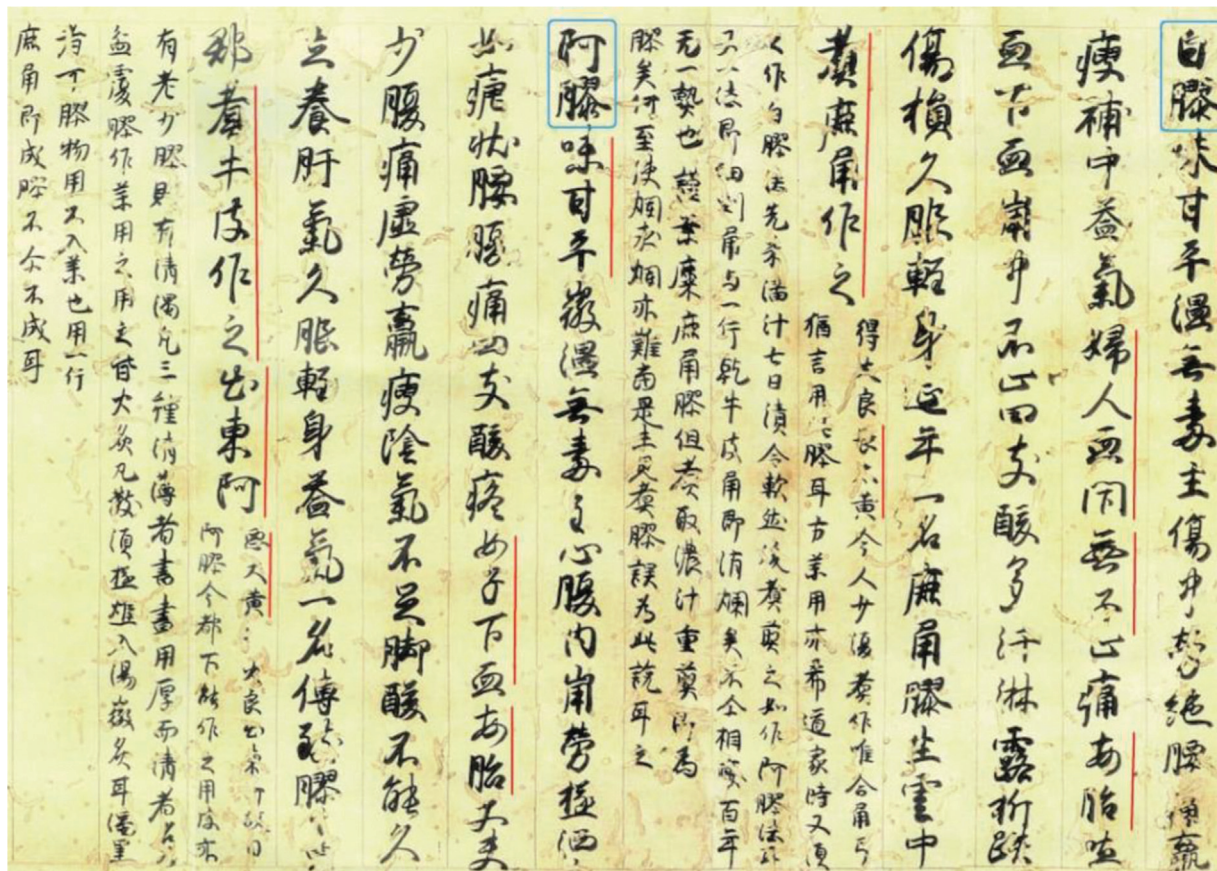 白膠味甘平溫無毒主傷中勞絕腰痛羸
瘦補中益氣婦人血閇無子止痛安胎吐
血下血崩中不止四支酸多汗淋露折跌
傷損久服輕身延年一名鹿角膠生雲中
煮鹿角作之
得火良畏大黃今人少復煮作唯合角弓
猶言用此膠耳方藥用亦希道家時又須
之作白膠法先米瀋汁七日漬令軟然後煮煎之如作阿膠法耳
又一法即細剉角与一行乾牛皮角即消爛矣不尒相厭百年
无一熟也 麋角膠但煮取濃汁重煎即為
膠矣何至使爛求爛亦難當是未見煮膠謬為此說耳之
阿膠味甘平微溫無毒主心腹內崩勞極洒
如瘧狀腰腹痛四支酸疼女子下血安胎丈夫
少腹痛虛勞羸瘦陰氣不足脚酸不能久
立養肝氣久服輕身益氣一名傅致膠
煮牛皮作之出東阿
惡大黃 火良
阿膠今都下能作之用皮亦
有老少膠則有清濁凡三種清薄者書畫用厚而清者名
盆覆膠作藥用之用之皆火炙丸散須極燥入湯微炙耳濁黑
膠物用不入藥也用一行
鹿角即成膠不尒不成耳